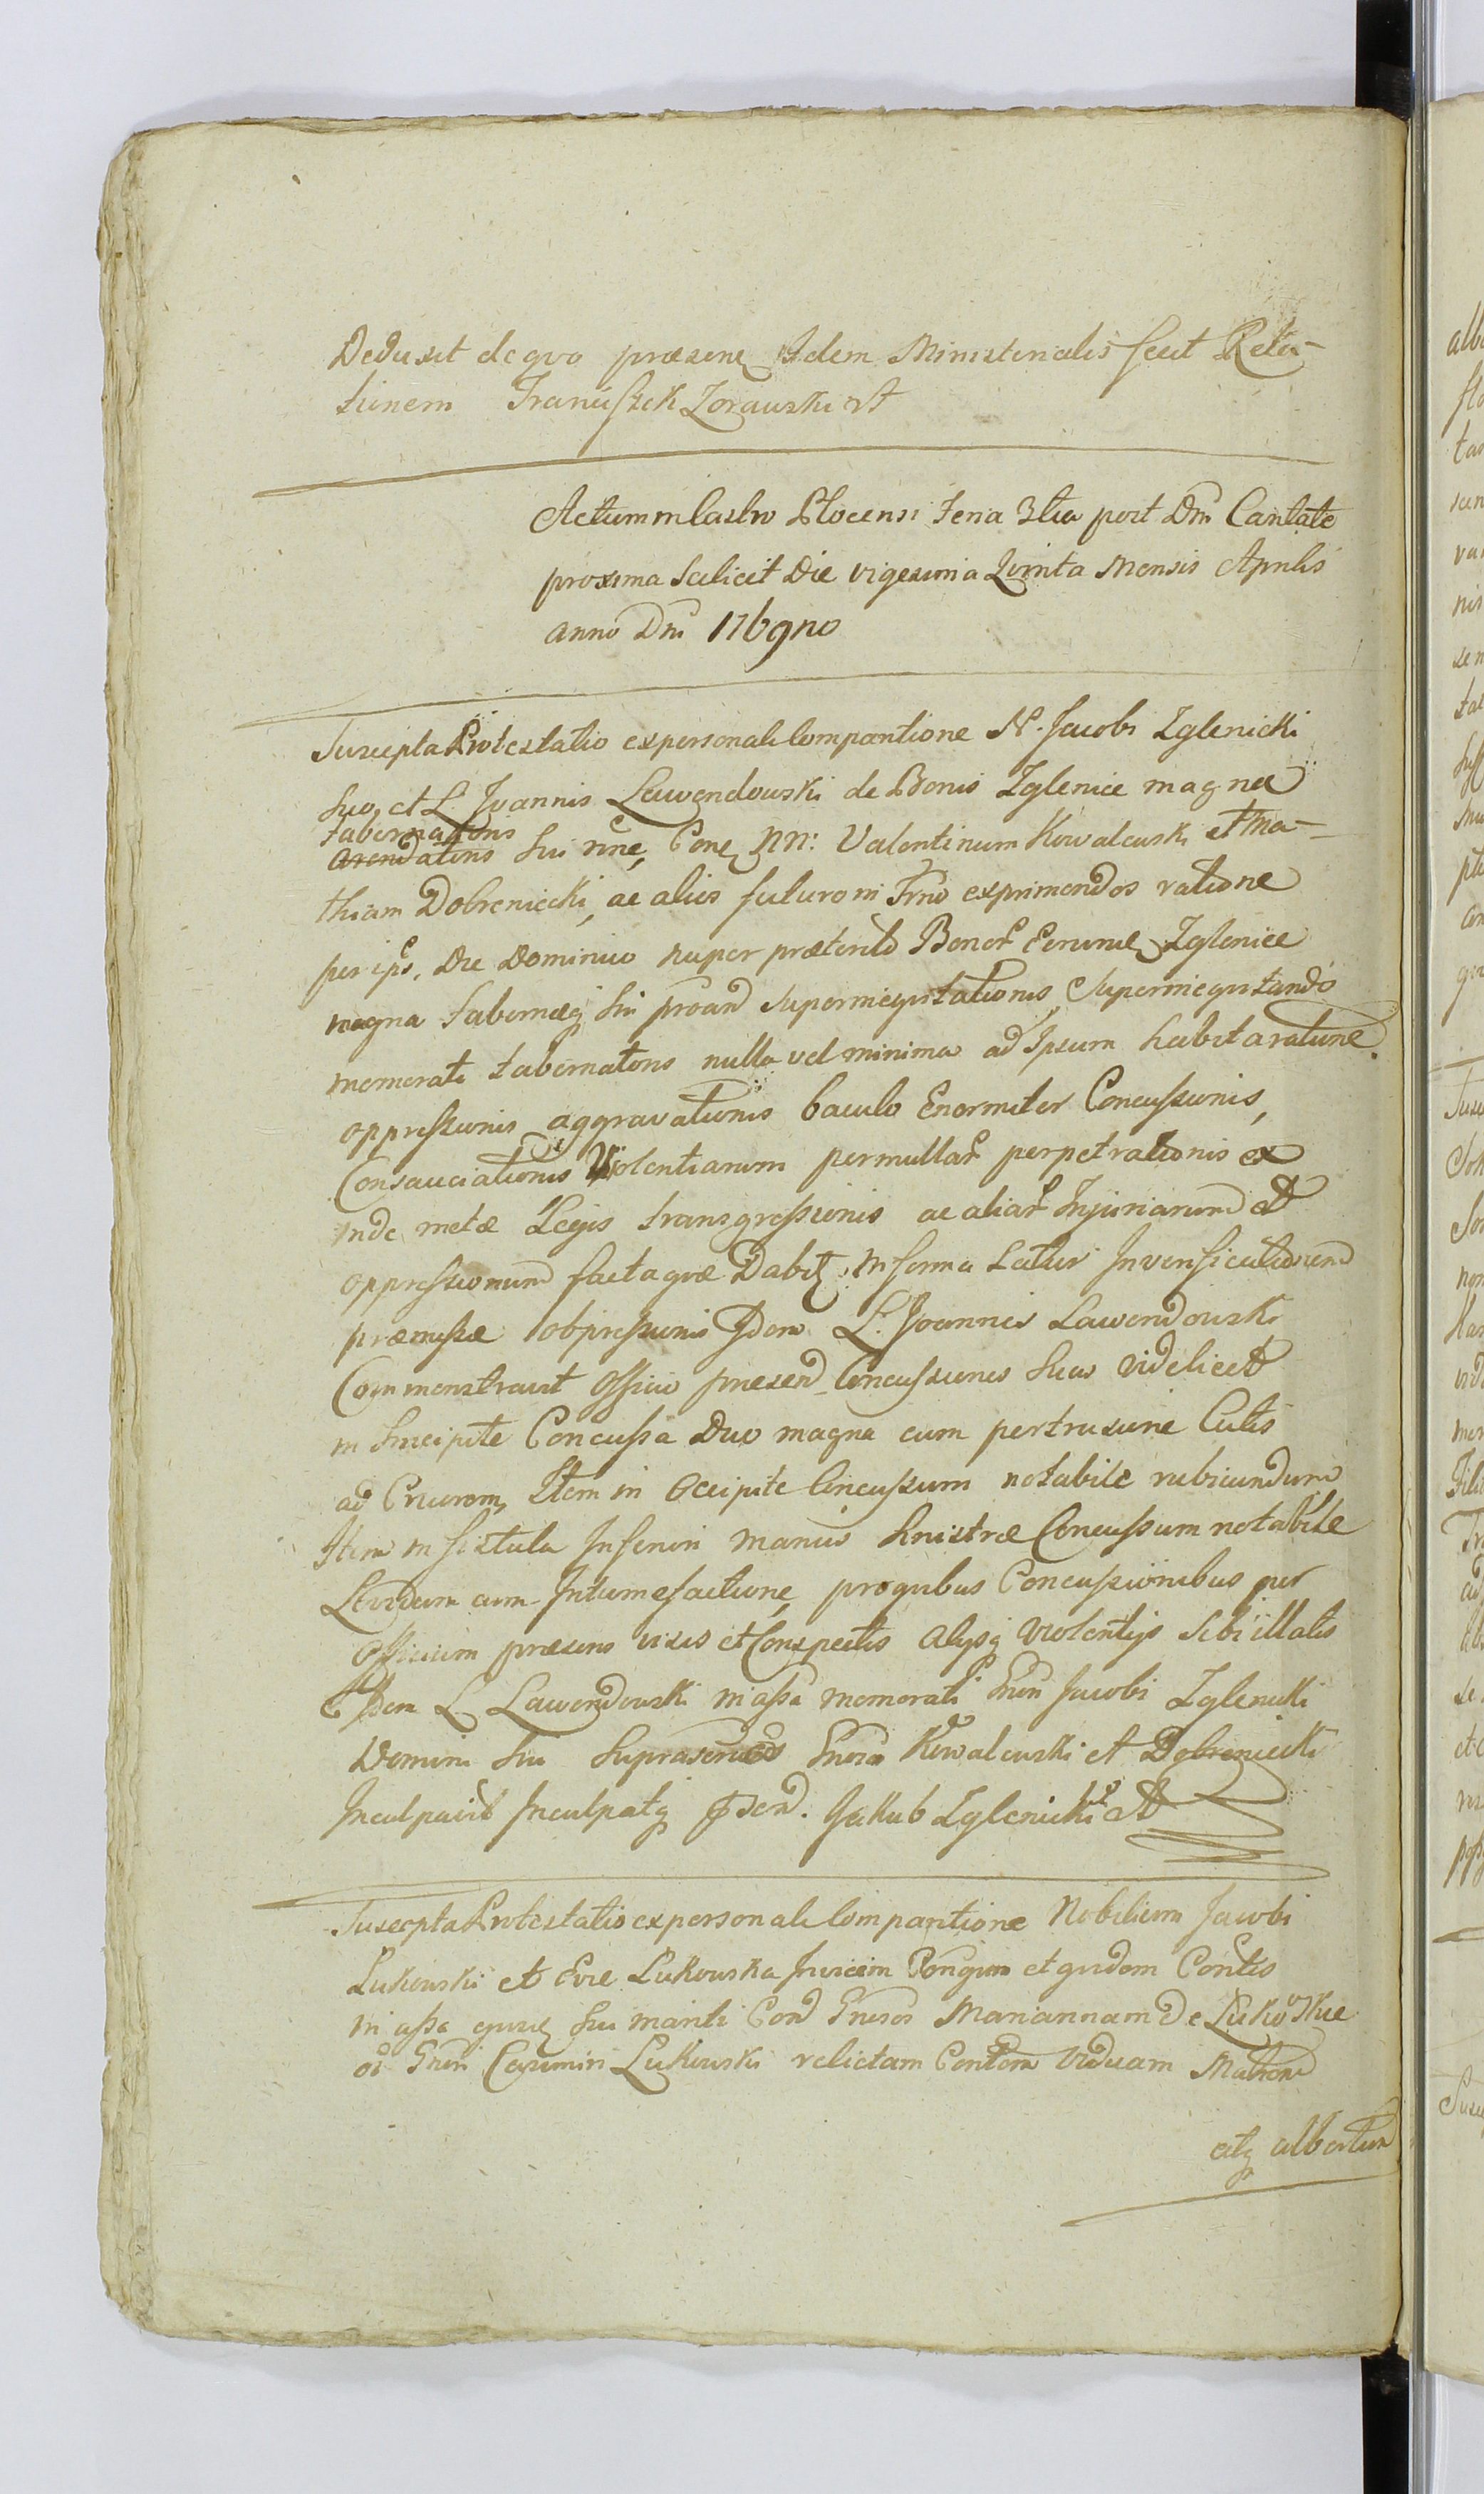 Deduxit de qvo præsenę Idem Ministerialis fecit Rela-
tionem Franciszek Zorawski A
Actum in Castro Plocensi Feria 3tia post Dm̃ Cantate
proxima Scilicet Die vigesima Qvinta Mensis Aprilis
anno Dm̃ 1769no
Suscepta Protestatio ex personali Comparitione N. Jacobi Zglenicki
suo, et L. Joannis Lawendowski de Bonis Zglenice magna
Tabernatoris
arendatoris sui nñe, Conę NN: Valentinum Kowalewski et Ma-
thiam Dobreniecki, ac alios futuro in Trño exprimendos ratione
per ip̃s, Die Dominico nuper præterito Bonor̃ Eorum Zglenice
magna Tabernæq sui supermequitationis, Supermequitando
memorati tabernatoris nulla vel minima ad Ipsum habita ratione
oppressionis aggravationis baculo Enormiter Concussionis,
Consauciationis Violentiarum permultar̃ perpetrationis ex
inde metæ Legis transgressionis ac aliar̃ Injuriarum et
oppressionum factaqve Dabitę in forma Latiori In verificationem
præmissæ obpressionis Idem L. Joannes Lawendowski
Commonstravit Officio præsenti Concussiones suas videlicet
in Sincipite Concussa Duo magna cum pertrusione Cutis
ad Cruorem, Item in Occipite Concussum notabile rubicundum
Item in fistula Inferiori manus sinistræ Concussum notabile
Lividum cum Intumefactione, pro qvibus Concussionibus per
Officium præsens visis et Conspectis alysq violentijs sibi illatis
Idem L. Lawendowski in assa memorati Gnẽri Jacobi Zglenicki
Domini sui Suprascriptos Kowalewski et Dobreniecki
Inculpavit Inculpatq Jakub Zglenicki
Suscepta Protestatio ex personali Comparitione Nobilium Jacobi
Lukowski et Evæ Lukowska Invicem Conjum et qvidem Contis
in assa ejusdę sui mariti Con̄ Gnẽsos Mariannam de Lukowskie
oĩ Gnẽri Casimiri Lukowski relictam Contem viduam Matrem
atq albertum